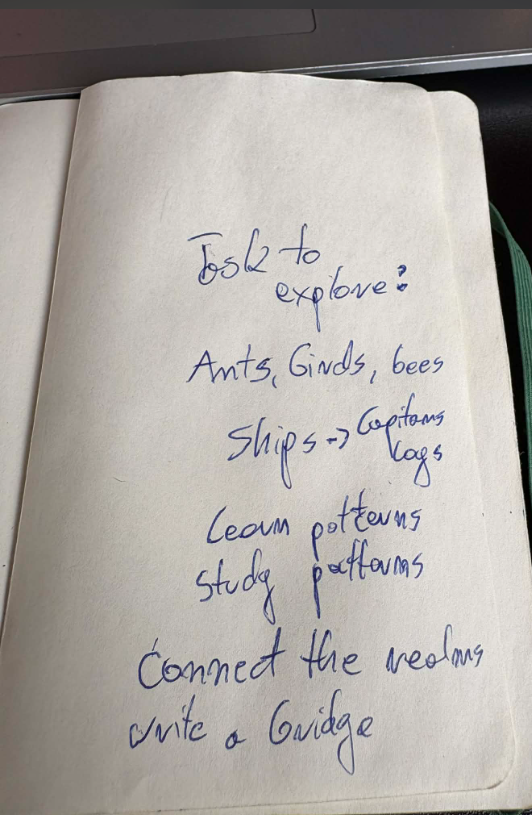 Task to
explore:
Ants, birds, bees
Ships -> Capitans
Logs
Learn patterns
Study patterns
Connect the realms
write a bridge